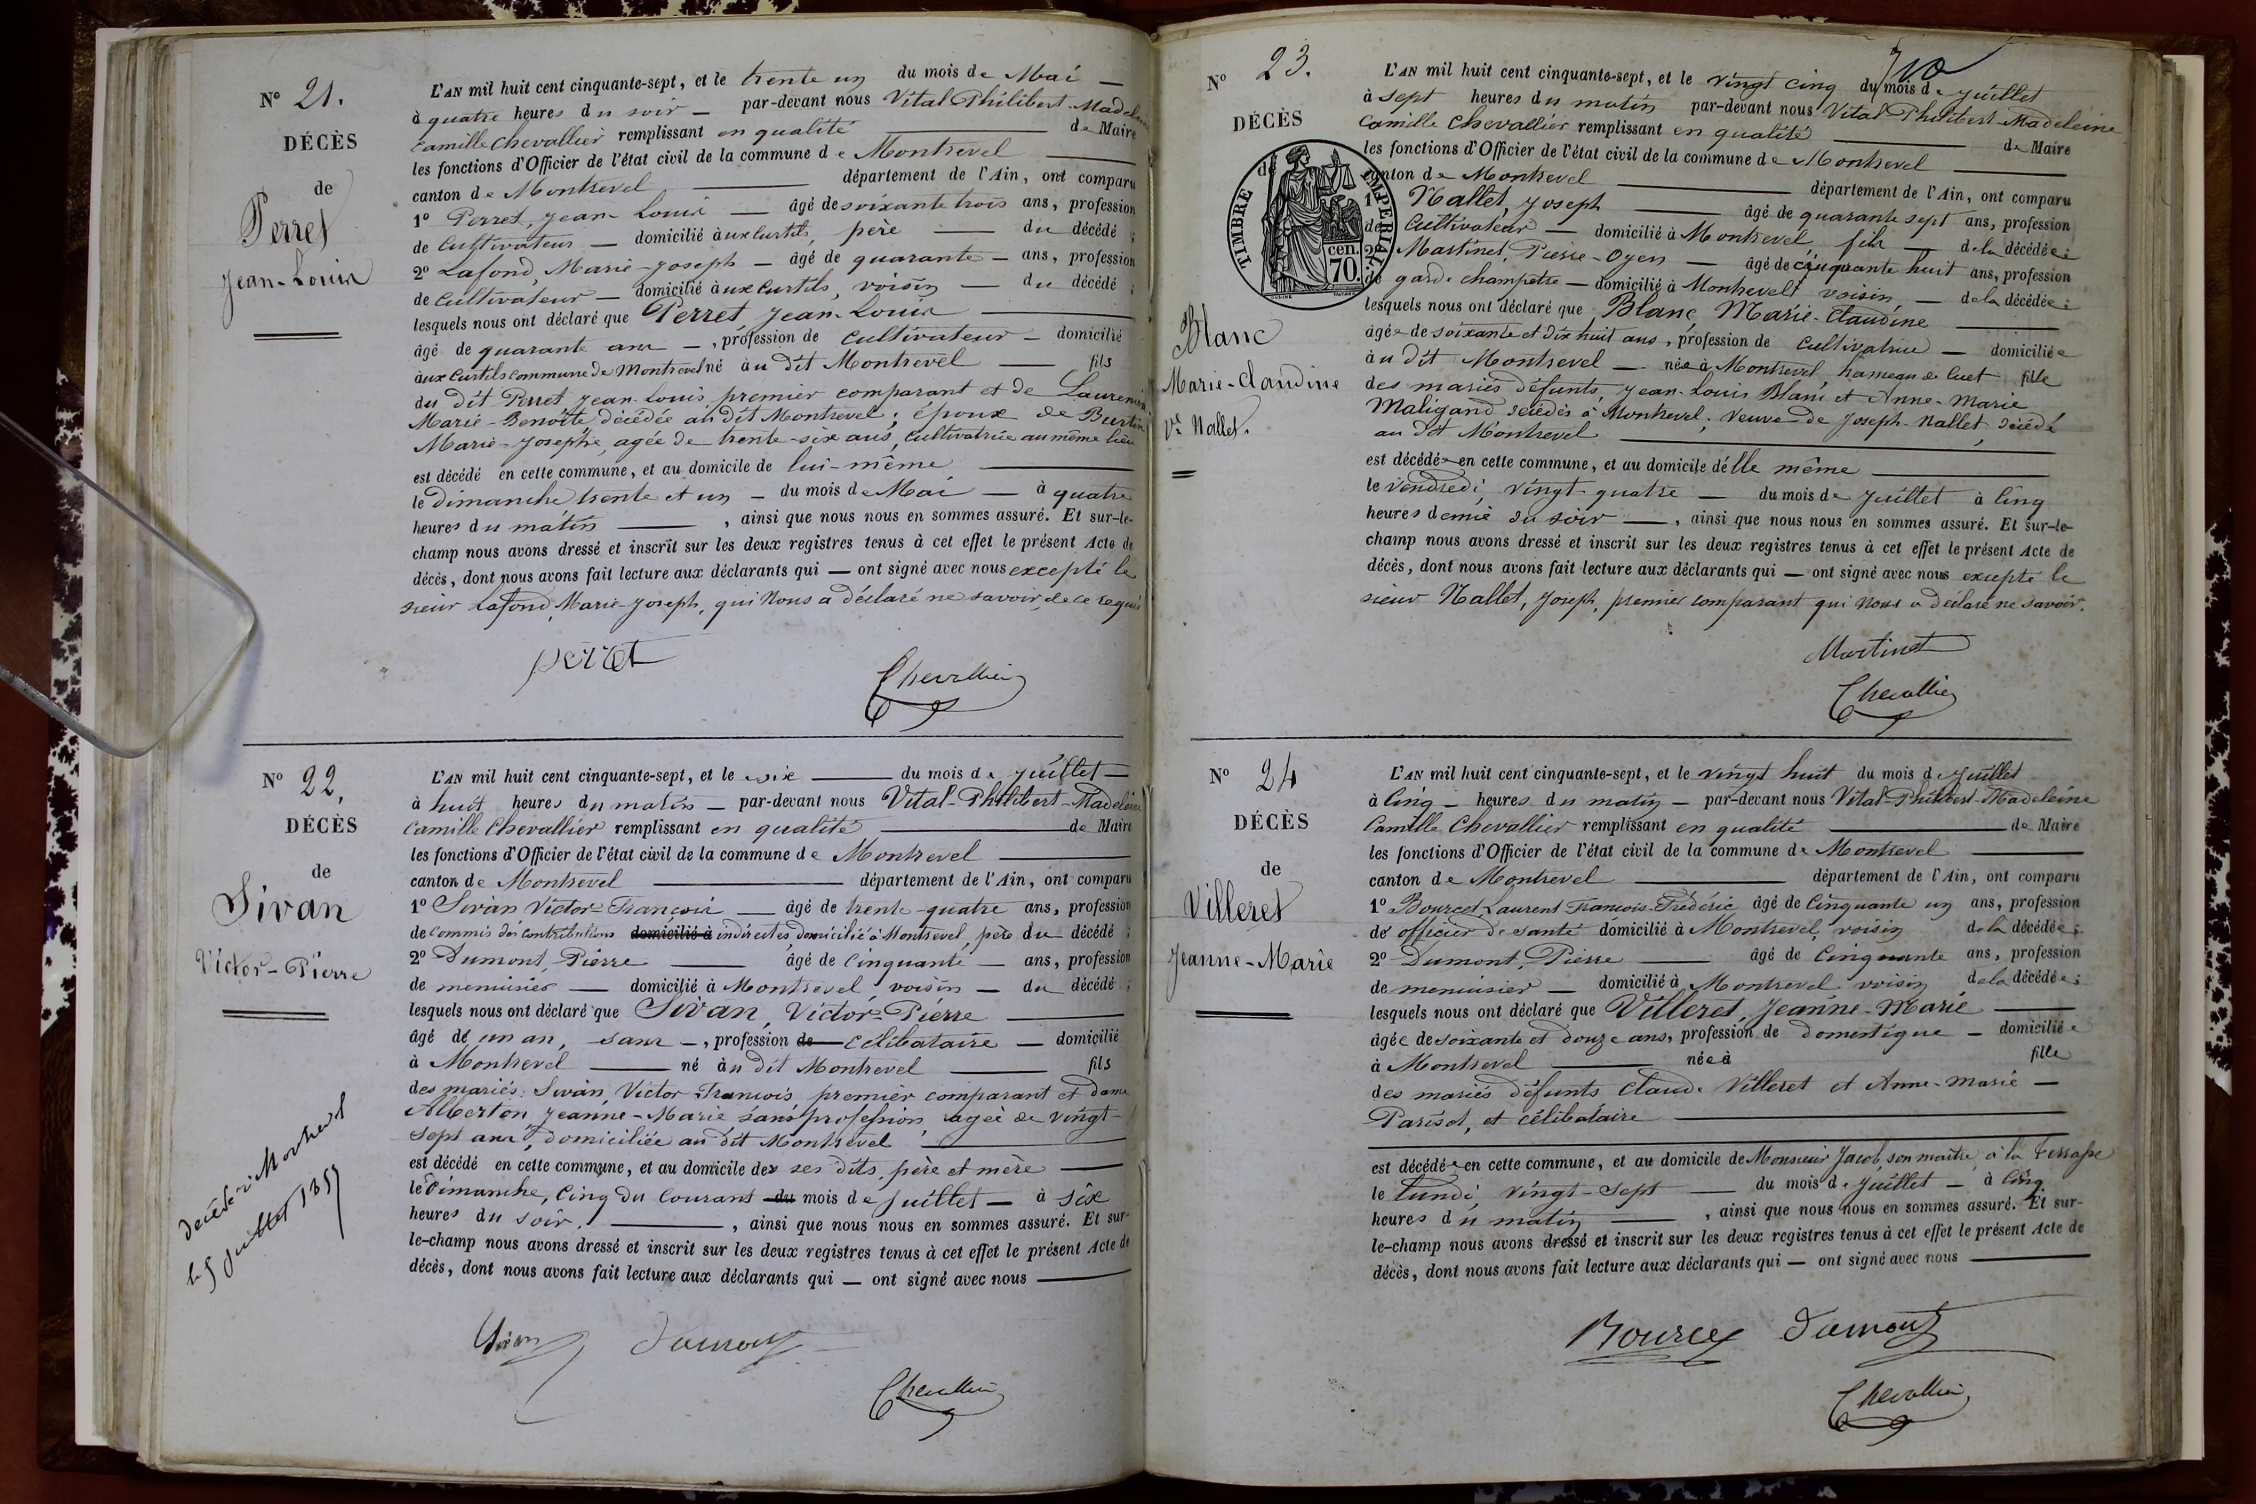 N° 21.
DÉCÈS
de
Perret
Jean-Louis
L'AN mil huit cent cinquante-sept, et le trente un du mois de Mai
à quatre heures du soir — par-devant nous Vital Philibert-Madeleine
Camille Chevallier remplissant en qualité de Maire
les fonctions d'Officier de l'état civil de la commune de Montrevel
canton de Montrevel département de l'Ain, ont comparu
1° Perret, Jean-Louis — âgé de soixante trois ans, profession
de cultivateur — domicilié aux Curtils, père — du décédé ;
2° Lafond, Marie-Joseph — âgé de quarante — ans, profession
de cultivateur — domicilié aux Curtils, voisin — du décédé ;
lesquels nous ont déclaré que Perret Jean-Louis
âgé de quarante ans —, profession de cultivateur — domicilié
aux Curtils commune de Montrevel né au dit Montrevel — fils
du dit Perret Jean-Louis premier comparant et de
Marie-Benoîte décédée au dit Montrevel ; époux de
Marie-Josephte, agée de trente-six ans, cultivatrice au même lieu
est décédé en cette commune, et au domicile de lui-même
le Dimanche trente et un — du mois de Mai — à quatre
heures du matin —, ainsi que nous nous en sommes assuré. Et sur-le-
champ nous avons dressé et inscrit sur les deux registres tenus à cet effet le présent Acte de
décès, dont nous avons fait lecture aux déclarants qui — ont signé avec nous excepté le
sieur Lafond, Marie-Joseph, qui nous a déclaré ne savoir, de ce requis
perret
Chevallier
N° 22.
DÉCÈS
de
Sivan
Victor-Pierre
décédé à Montrevel
le 5 juillet 1857
L'AN mil huit cent cinquante-sept, et le six — du mois de Juillet —
à huit heures du matin — par-devant nous Vital-Philibert-Madeleine
Camille Chevallier remplissant en qualité de Maire
les fonctions d'Officier de l'état civil de la commune de Montrevel
canton de Montrevel département de l'Ain, ont comparu
1° Sivan Victor-François — âgé de trente-quatre ans, profession
de commis des contributions domicilié à indirectes, domicilié à Montrevel, père du décédé ;
2° Dumont, Pierre — âgé de cinquante — ans, profession
de menuisier — domicilié à Montrevel, voisin — du décédé ;
lesquels nous ont déclaré que Sivan, Victor-Pierre
âgé de un an, sans —, profession de célibataire — domicilié
à Montrevel — né au dit Montrevel — fils
des mariés Sivan, Victor François premier comparant et dame
Alberton Jeanne-Marie, sans profession, agée de vingt-
sept ans, domiciliée au dit Montrevel
est décédé en cette commune, et au domicile de ses dits, père et mère
le Dimanche, cinq du courant du mois de Juillet — à six
heures du soir. —, ainsi que nous nous en sommes assuré. Et sur-
le-champ nous avons dressé et inscrit sur les deux registres tenus à cet effet le présent Acte de
décès, dont nous avons fait lecture aux déclarants qui — ont signé avec nous
Sivan Dumont
Chevallier
N° 23.
DÉCÈS
de
TIMBRE IMPÉRIAL
70 cen.
Blanc
Marie-Claudine
Ve Nallet.
L'AN mil huit cent cinquante-sept, et le vingt cinq du mois de Juillet
à sept heures du matin par-devant nous Vital Philibert-Madeleine
Camille Chevallier remplissant en qualité de Maire
les fonctions d'Officier de l'état civil de la commune de Montrevel
canton de Montrevel département de l'Ain, ont comparu
1° Nallet, Joseph — âgé de quarante sept ans, profession
de cultivateur — domicilié à Montrevel fils — de la décédée ;
2° Martinet, Pierre-Oyen — âgé de cinquante huit ans, profession
de garde champêtre — domicilié à Montrevel voisin — de la décédée ;
lesquels nous ont déclaré que Blanc Marie-Claudine
âgée de soixante et dix huit ans, profession de cultivatrice — domiciliée
au dit Montrevel — née à Montrevel hameau de Cuet fille
des mariés défunts, Jean-Louis Blanc et Anne-Marie
Maligand décédés à Montrevel ; Veuve de Joseph-Nallet, décédé
au dit Montrevel
est décédée en cette commune, et au domicile d'elle même
le Vendredi, vingt-quatre — du mois de Juillet à cinq
heures demie du soir —, ainsi que nous nous en sommes assuré. Et sur-le-
champ nous avons dressé et inscrit sur les deux registres tenus à cet effet le présent Acte de
décès, dont nous avons fait lecture aux déclarants qui — ont signé avec nous excepté le
sieur Nallet, Joseph, premier comparant qui nous a déclaré ne savoir.
Martinet
Chevallier
N° 24
DÉCÈS
de
Villeret
Jeanne-Marie
L'AN mil huit cent cinquante-sept, et le vingt huit du mois de Juillet
à cinq — heures du matin — par-devant nous Vital-Philibert-Madeleine
Camille Chevallier remplissant en qualité de Maire
les fonctions d'Officier de l'état civil de la commune de Montrevel
canton de Montrevel département de l'Ain, ont comparu
1° Bourcet, Laurent François-Frédéric âgé de cinquante un ans, profession
de officier de santé domicilié à Montrevel, voisin de la décédée ;
2° Dumont, Pierre — âgé de cinquante ans, profession
de menuisier — domicilié à Montrevel voisin de la décédée ;
lesquels nous ont déclaré que Villeret, Jeanne-Marie
âgée de soixante et douze ans, profession de domestique — domiciliée
à Montrevel née à fille
des mariés défunts Claude Villeret et Anne-Marie —
Parisot, et célibataire
est décédée en cette commune, et au domicile de Monsieur Jacob, son maître, à la Terrasse
le Lundi vingt-sept — du mois de Juillet — à cinq
heures du matin —, ainsi que nous nous en sommes assuré. Et sur-
le-champ nous avons dressé et inscrit sur les deux registres tenus à cet effet le présent Acte de
décès, dont nous avons fait lecture aux déclarants qui — ont signé avec nous
Bourcet Dumont
Chevallier